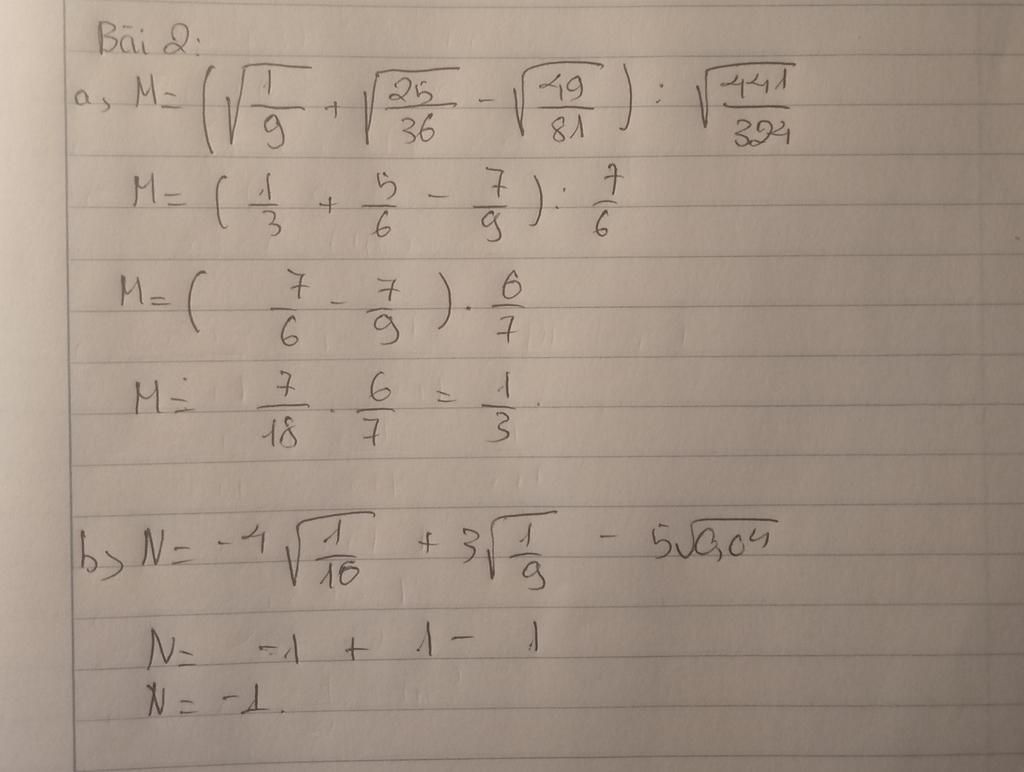 Bài 2:
a, M = (√(1/9) + √(25/36) - √(49/81)) : √(441/324)
M = (1/3 + 5/6 - 7/9) : 7/6
M = (7/6 - 7/9) . 6/7
M = 7/18 . 6/7 = 1/3.
b, N = -4√(1/16) + 3√(1/9) - 5√0,04
N = -1 + 1 - 1
N = -1.